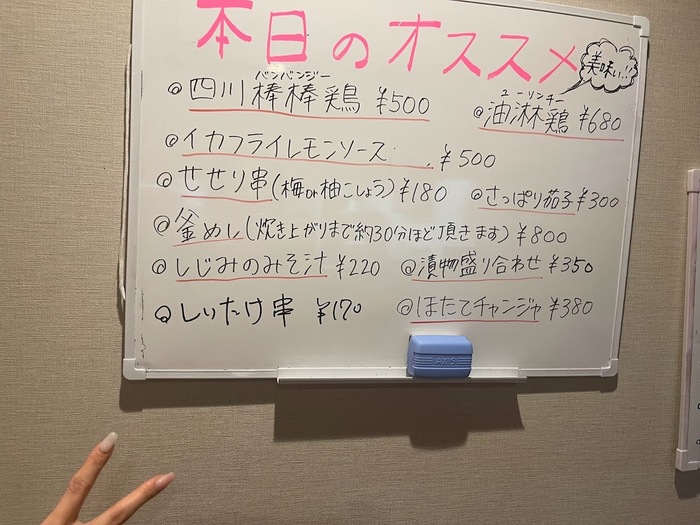 本日のオススメ
美味い!!
バンバンジー
◎四川棒棒鶏 ¥500
ユーリンチー
◎油淋鶏 ¥680
◎イカフライレモンソース ¥500
◎せせり串(梅or柚こしょう)¥180
◎さっぱり茄子¥300
◎釜めし(炊き上がりまで約30分ほど頂きます)¥800
◎しじみのみそ汁 ¥220
◎漬物盛り合わせ ¥350
◎しいたけ串 ¥170
◎ほたてチャンジャ ¥380